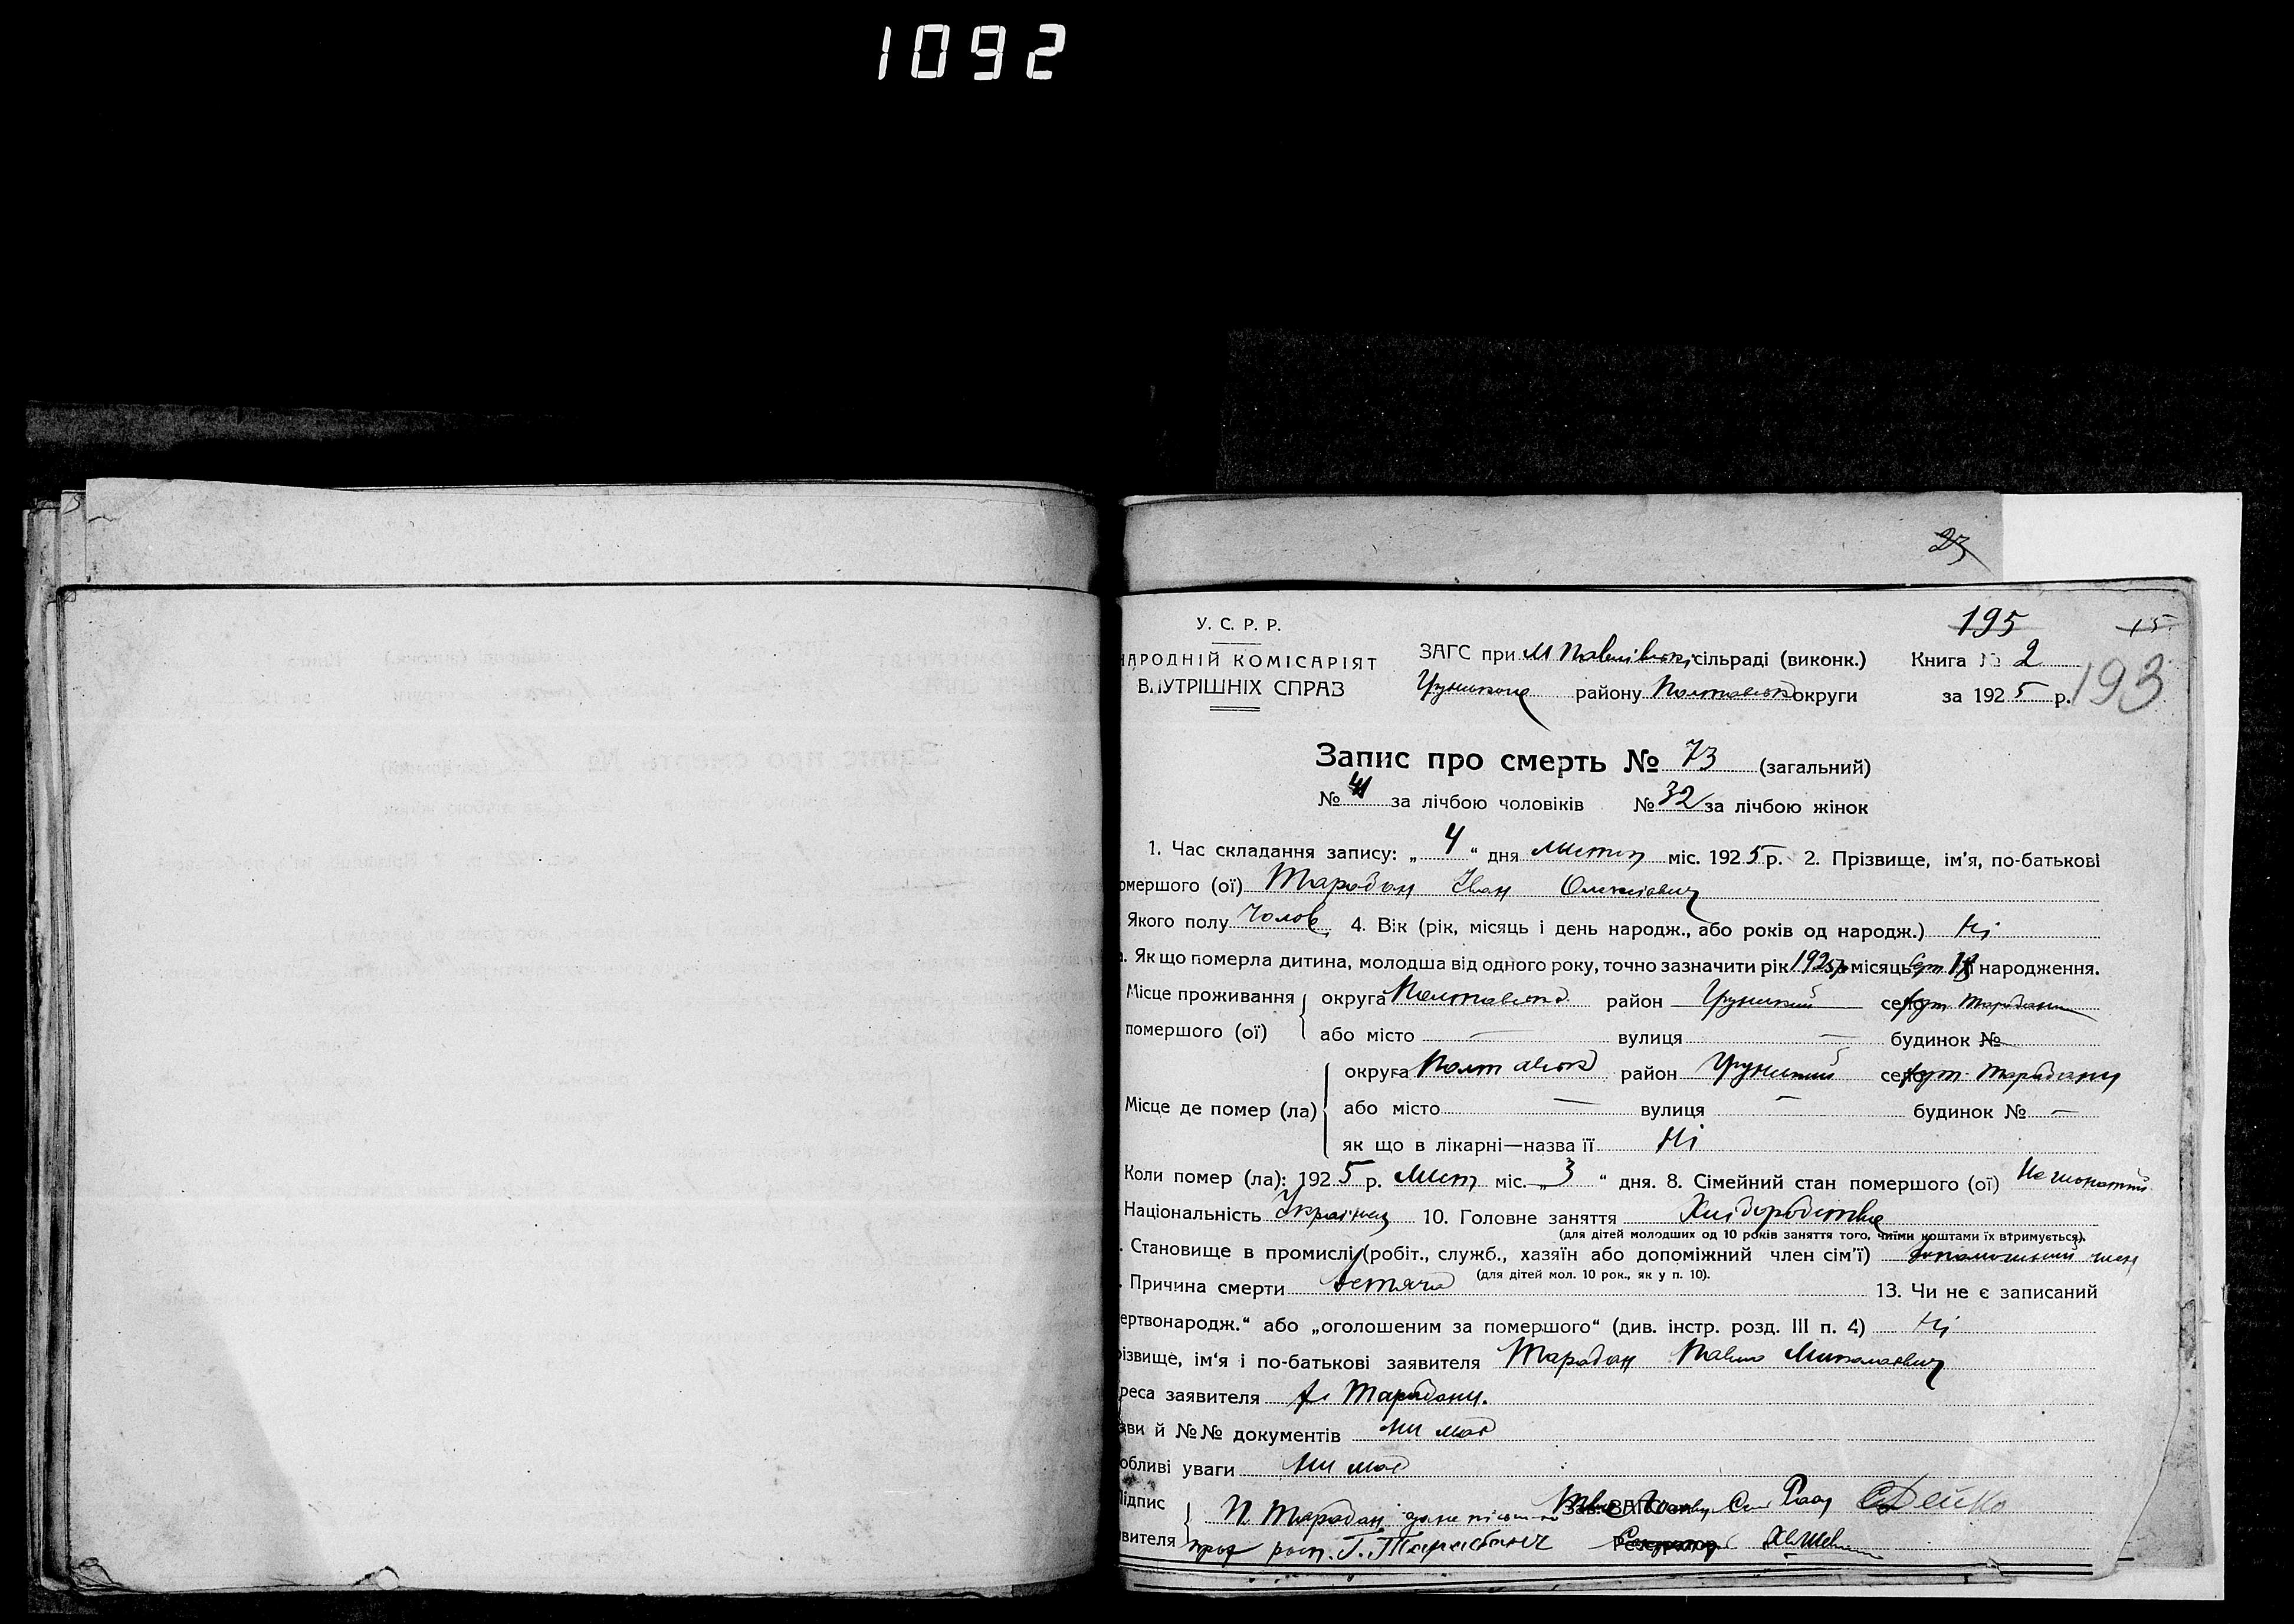 1092
23
195 15
У. С. Р. Р.
НАРОДНІЙ КОМІСАРІЯТ
ВНУТРІШНІХ СПРАВ
ЗАГС при М Павлівській сільраді (виконк.) Книга № 2
району Полтавської округи за 1925 р. 193
Запис про смерть № 73 (загальний)
№ 41 за лічбою чоловіків № 32 за лічбою жінок
1. Час складання запису: „ 4 “ дня Листоп міс. 1925 р. 2. Прізвище, ім'я, по-батькові
омершого (ої) Тарадан Іван Олексієвич
Якого полу Чолов 4. Вік (рік, місяць і день народж., або років од народж.) Ні
. Як що померла дитина, молодша від одного року, точно зазначити рік 1925 р місяць народження.
Місце проживання округа Полтавська район село хут Тарадани
помершого (ої) або місто — вулиця — будинок №
округа Полтавськ район село хут. Тарадани
Місце де помер (ла) або місто — вулиця — будинок № —
як що в лікарні—назва її Ні
Коли помер (ла): 1925 р. Лист міс. „ 3 “ дня. 8. Сімейний стан помершого (ої) Не жонатий
Національність Українец 10. Головне заняття Хліборобство
(для дітей молодших од 10 років заняття того, чиїми коштами їх втримується).
. Становище в промислі (робіт., служб., хазяїн або допоміжний член сім'ї) допоміжний член
(для дітей мол. 10 рок., як у п. 10).
. Причина смерти 13. Чи не є записаний
ертвонародж.“ або „оголошеним за помершого“ (див. інстр. розд. III п. 4) Ні
різвище, ім'я і по-батькові заявителя Тарадан Павло Миколаевич
реса заявителя х. Тарадани.
зви й №№ документів Ни має
обливі уваги Ни має
Підпис П. Тарадан Зав. ЗАГС'ом Дейко
вителя росп. Г. Тарабанъ